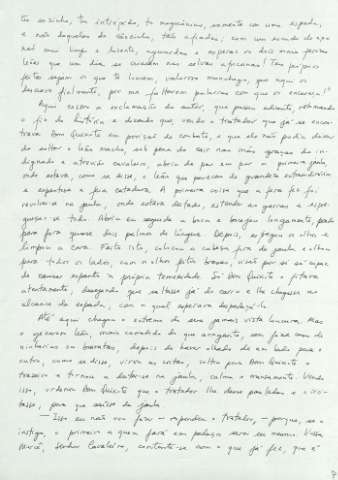 tão sozinho, tão intrépido, tão magnânimo, somente com uma espada,
e não daquelas do cãozinho, não afiadas, com um escudo de aço
não mui limpo e luzente, aguardas e esperas os dois mais feros
leões que um dia se criaram nas selvas africanas! Teus próprios
feitos sejam os que te louvem, valoroso manchego, que aqui os
deixo fielmente, por me faltarem palavras com que os encareça!"
Aqui cessou a exclamação do autor, que passou adiante, retomando
o fio da história e dizendo que, vendo o tratador que já se encon-
trava Dom Quixote em posição de combate, e que ele não podia deixar
de soltar o leão macho, sob pena de cair nas más graças do in-
dignado e atrevido cavaleiro, abriu de par em par a primeira jaula,
onde estava, como se disse, o leão, que pareceu de grandeza extraordinária
e espantosa e feia catadura. A primeira coisa que a fera fez foi
revolver-se na jaula, onde estava deitado, estendendo as garras e espre-
guiçar-se todo. Abriu em seguida a boca e bocejou longamente, pondo
para fora quase dois palmos de língua. Depois, esfregou os olhos e
limpou a cara. Feito isto, colocou a cabeça fora da jaula e olhou
para todos os lados, com os olhos feitos brasas, visão por si só capaz
de causar espanto à própria temeridade. Só Dom Quixote o fitava
atentamente, desejando que saltasse já do carro e lhe chegasse ao
alcance da espada, com a qual esperava despedaçá-lo.
Até aqui chegou o extremo de sua jamais vista loucura. Mas
o generoso leão, mais comedido do que arrogante, sem fazer caso de
ninharias ou bravatas, depois de haver olhado de um lado para o
outro, como se disse, virou as costas, voltou para Dom Quixote o
traseiro e tornou a deitar-se na jaula, calma e mansamente. Vendo
isso, ordenou Dom Quixote que o tratador lhe desse pauladas e o irri-
tasse, para que saísse da jaula.
— Isso eu não vou fazer — respondeu o tratador, — porque, se o
instigo, o primeiro a quem fará em pedaços serei eu mesmo. Vossa
Mercê, senhor Cavaleiro, contente-se com o que já fez, que é